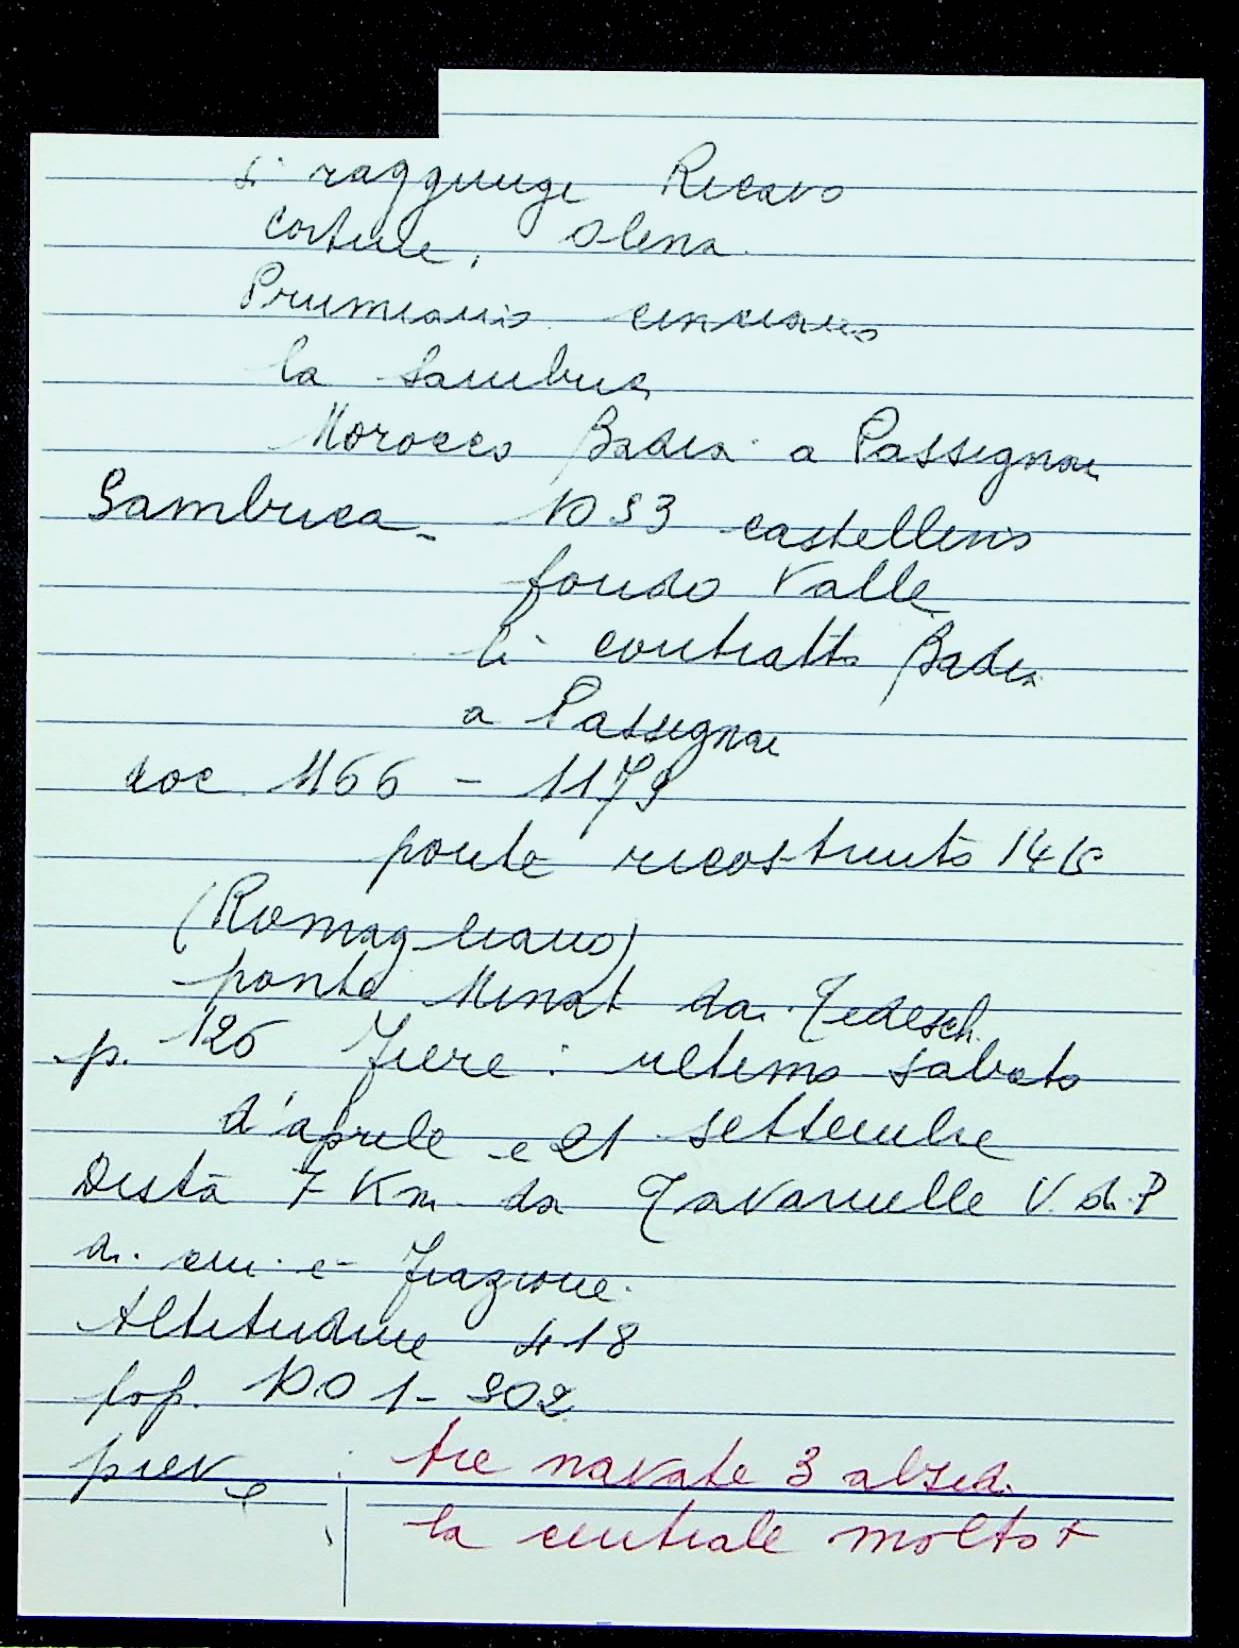 si raggiunge Ricavo
cortine, Olena
Prumiano cinciano
la Sambuca
Morocco Badia a Passignan
Sambuca - 1053 castellino
fondo valle
li contratto Badia
a Passignan
doc. 1166 - 1179
ponte ricostruito 1415
(Romagliano)
ponte Minat da Tedesch.
p. 126 Fiere: ultimo sabato
d'aprile e 21 settembre
Dista 7 Km da Tavarnelle V. di P
di cui è frazione.
Altitudine 418
pop. 1001 - 902
pieve : tre navate 3 absid.
la centrale molto +